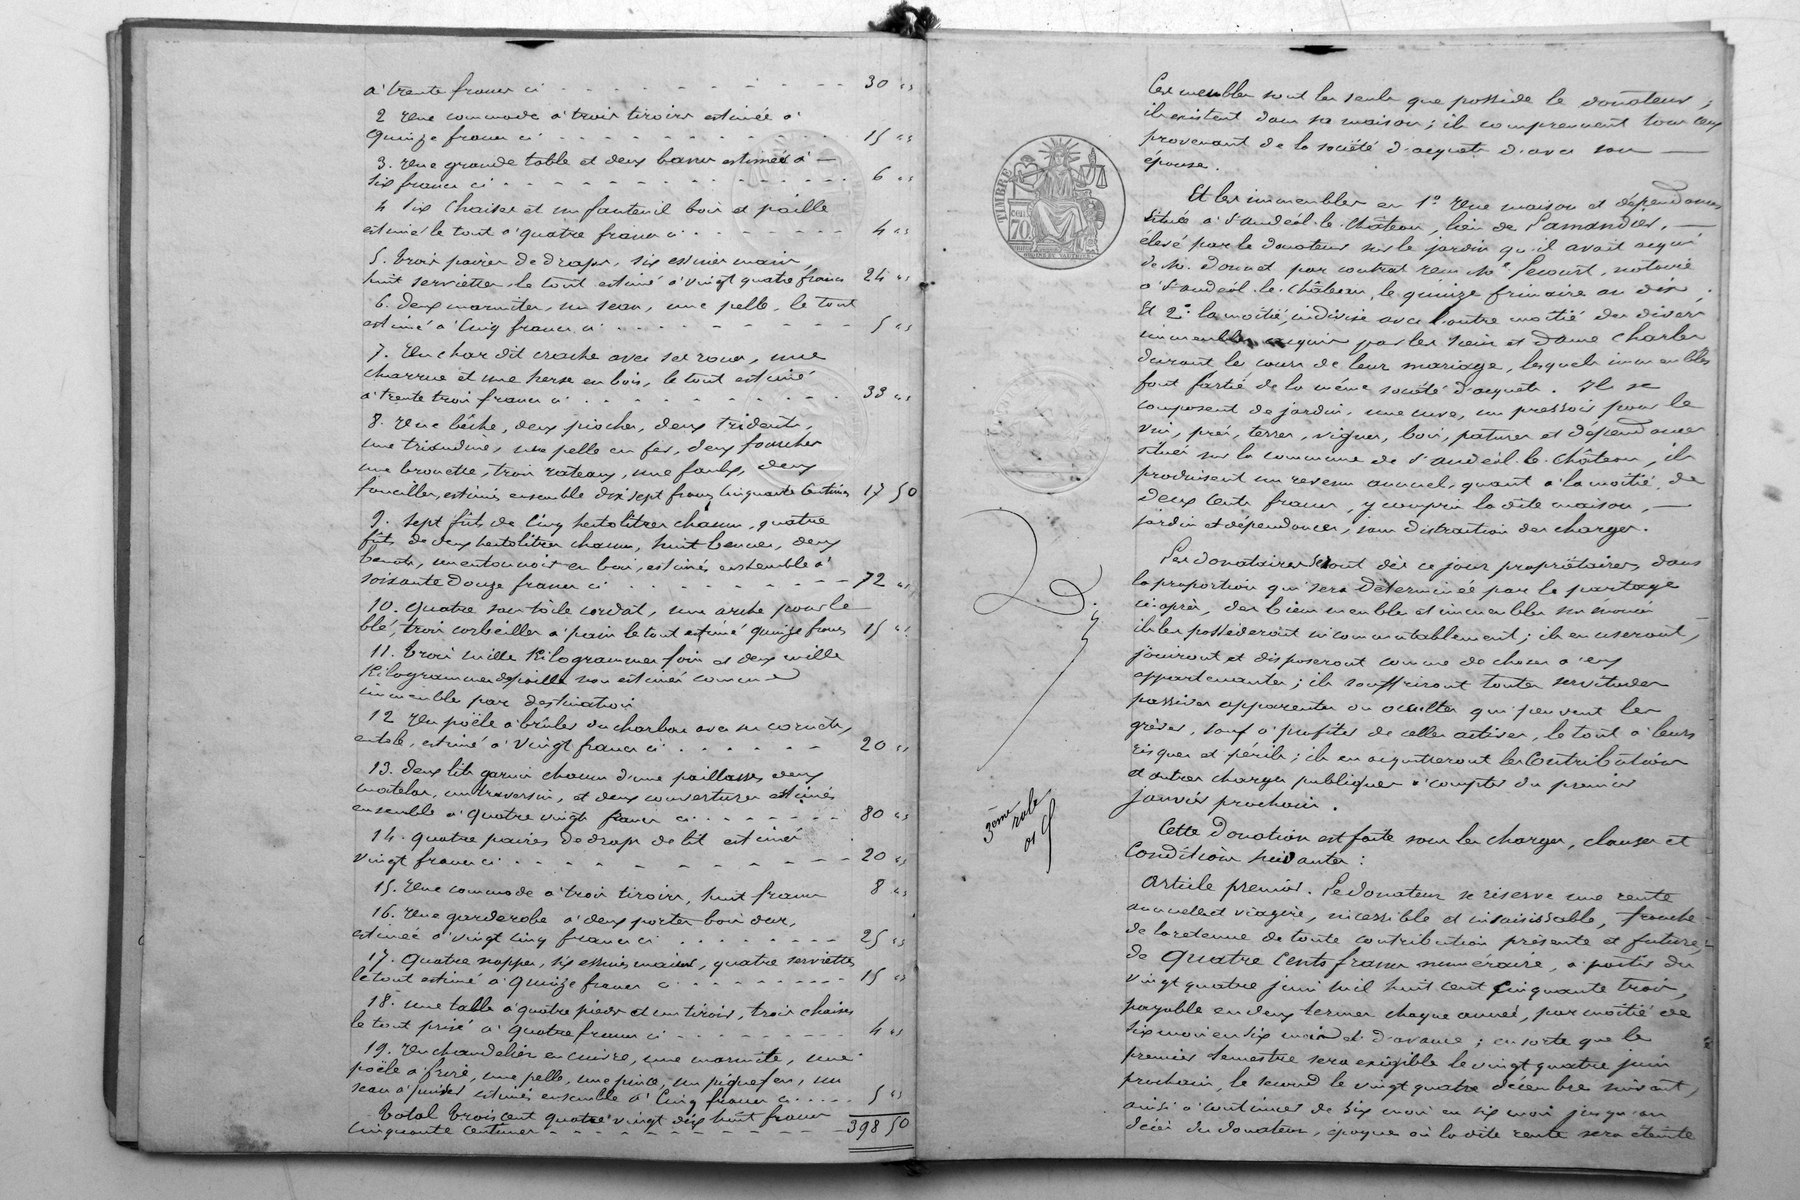 a' trente francs ci - - - - - - 30 "
2 Une commode a' trois tiroirs estimée a'
quinze francs ci - - - - - - 15 "
3. Une grande table et deux bancs estimés a' -
six francs ci - - - - - - 6 "
4 Six chaises et un fauteuil bois et paille
estimés le tout a' quatre francs ci - - - - 4 "
5. Trois paires de draps, six essuies mains,
huit serviettes, le tout estimé a' vingt quatre francs 24 "
6. Deux marmites, un seau, une pelle, le tout
estimé a' cinq francs ci - - - - - 5 "
7. Un char dit crache avec ses roues, une
charrue et une herse en bois, le tout estimé
a' trente trois francs ci - - - - - 33 "
8. Une bêche, deux pioches, deux tridents,
une triandine, une pelle en fer, deux fourches
une brouette, trois rateaux, une faulx, deux
faucilles, estimés ensemble dix sept francs cinquante centimes 17 50
9. Sept fûts de cinq hectolitres chacun, quatre
fûts de deux hectolitres chacun, huit bennes, deux
bennots, un entonnoir en bois, estimés ensemble a'
soixante douze francs ci - - - - 72 "
10. Quatre sacs toile cordat, une arche pour le
blé, trois corbeilles a' pain le tout estimé quinze francs 15 "
11. Trois mille Kilogrammes foin et deux mille
Kilogrammes de paille non estimés comme
immeuble par destination
12 Un poële a' brûler du charbon avec ses cornets,
en tole, estimé a' vingt francs ci - - - - 20 "
13. Deux lits garnis chacun d'une paillasse, deux
matelas, un traversin, et deux couvertures estimés
ensemble a' quatre vingt francs ci - - - - 80 "
14. Quatre paires de draps de lit estimés
vingt francs ci - - - - - - 20 "
15. Une commode a' trois tiroirs, huit francs 8 "
16. Une garderobe a' deux portes bois dur,
estimée a' vingt cinq francs ci - - - - 25 "
17. Quatre nappes, six essuies mains, quatre serviettes
le tout estimé a' quinze francs ci - - - - 15 "
18. Une table a' quatre pieds et un tiroir, trois chaises
le tout prisé a' quatre francs ci - - - - 4 "
19. Un chandelier en cuivre, une marmite, une
poële a' frire, une pelle, une pince, un piquefeu, un
seau a' puiser estimés ensemble a' cinq francs ci - - 5 "
Total trois cent quatre vingt dix huit francs
cinquante centimes - - - - - 398 50
Ces meubles sont les seuls que possède le donateur ;
ils existent dans sa maison ; ils comprennent tous ceux
provenant de la société d'acquets d'avec son -
épouse.
Et les immeubles en 1° Une maison et dépendances
située a' St andéol-le-Château, lieu de Lamandier, -
élevé par le donateur sur le jardin qu'il avait acquis
de M. Donnet par contrat reçu Me Lecourt, notaire
a' St andéol-le-Château, le quinze frimaire an dix ;
Et 2° la moitié, indivise avec l'autre moitié des divers
immeubles acquis par les sieur et dame Charles
durant le cours de leur mariage, lesquels immeubles
font partie de la même société d'acquets. Ils se
composent de jardin, une cuve, un pressoir pour le
vin, prés, terres, vignes, bois, patures et dépendances
situés sur la commune de St andéol-le-Château, ils
produisent un revenu annuel, quant a' la moitié, de
deux cents francs, y compris la dite maison, -
jardin et dépendances, sans distraction des charges.
Les donataires seront dès ce jour propriétaires, dans
la proportion qui sera déterminée par le partage
ci-après, des biens meubles et immeubles sus énoncés
ils les possèderont incommutablement ; ils en useront,
jouiront et disposeront comme de choses a' eux
appartenantes ; ils souffriront toutes servitudes
passives apparentes ou occultes qui peuvent les
grever, sauf a' profiter de celles actives, le tout a' leurs
risques et périls ; ils en acquitteront les Contributions
et autres charges publiques a' compter du premier
janvier prochain.
Cette donation est faite sous les charges, clauses et
Conditions suivantes :
Article premier. Le donateur se réserve une rente
annuelle et viagère, incessible et insaisissable, franche
de la retenue de toute contribution présente et future,
de quatre cents francs numéraire, a' partir du
vingt quatre juin mil huit cent cinquante trois,
payable en deux termes chaque année, par moitié de
six mois en six mois et d'avance ; en sorte que le
premier semestre sera exigible le vingt quatre juin
prochain, le second le vingt quatre décembre suivant,
ainsi a' continuer de six mois en six mois jusqu'au
décès du donateur, époque où la dite rente sera éteinte
3ème role
TIMBRE
70